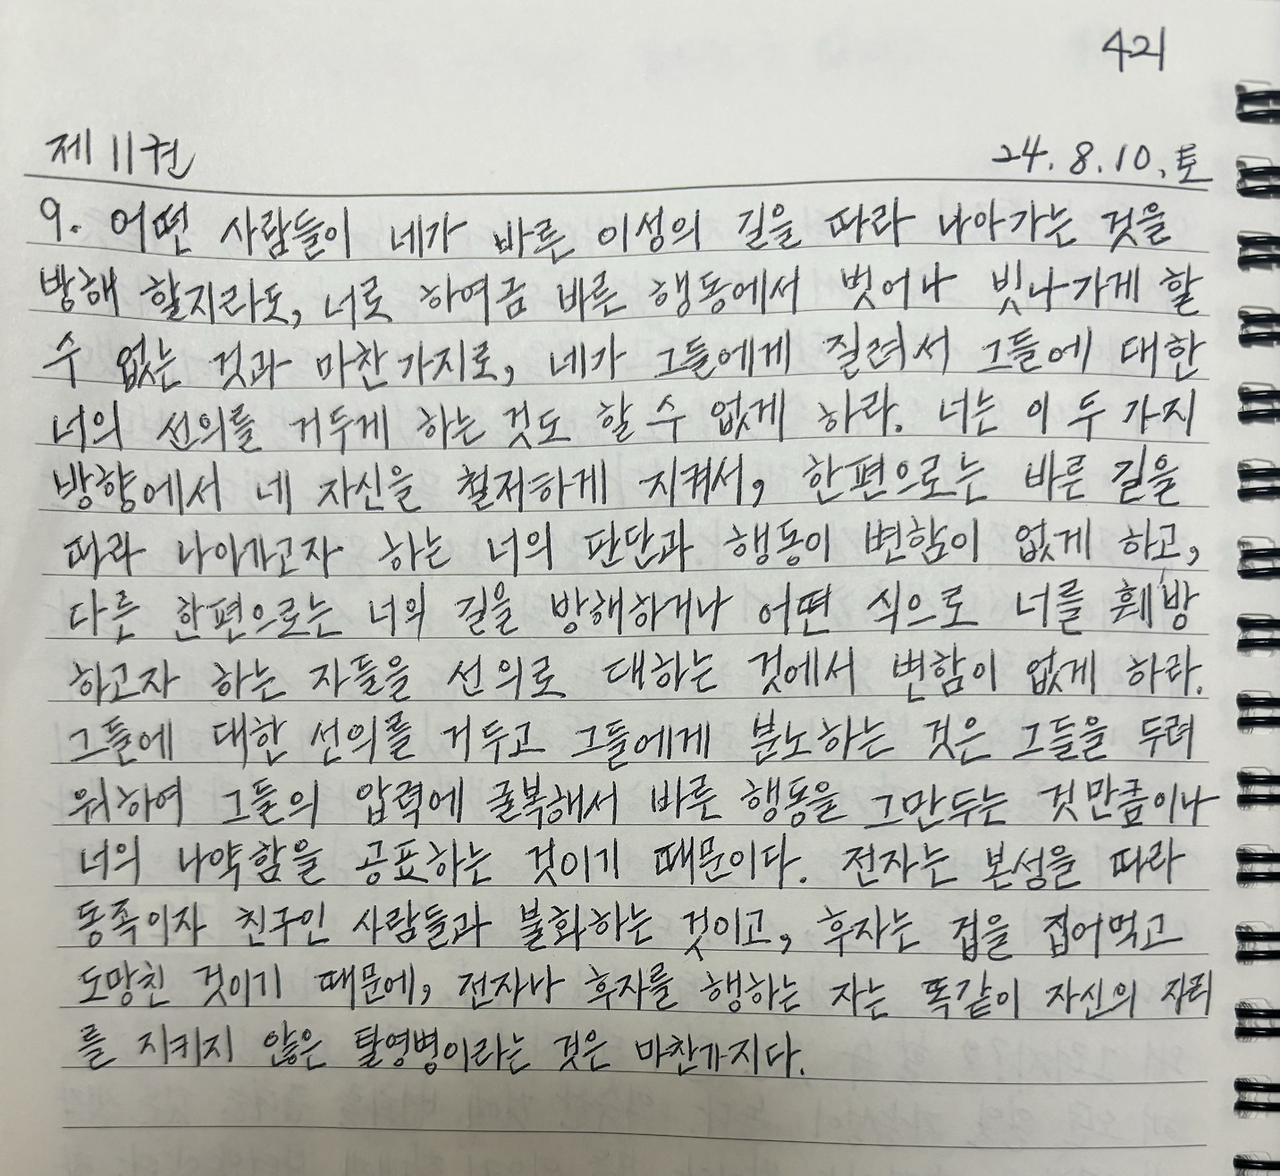 421
제 11권
24.8.10.토
9. 어떤 사람들이 네가 바른 이성의 길을 따라 나아가는 것을
방해 할지라도, 너로 하여금 바른 행동에서 벗어나 빗나가게 할
수 없는 것과 마찬가지로, 네가 그들에게 질려서 그들에 대한
너의 선의를 거두게 하는 것도 할 수 없게 하라. 너는 이 두 가지
방향에서 네 자신을 철저하게 지켜서, 한편으로는 바른 길을
따라 나아가고자 하는 너의 판단과 행동이 변함이 없게 하고,
다른 한편으로는 너의 길을 방해하거나 어떤 식으로 너를 훼방
하고자 하는 자들을 선의로 대하는 것에서 변함이 없게 하라.
그들에 대한 선의를 거두고 그들에게 분노하는 것은 그들을 두려
워하여 그들의 압력에 굴복해서 바른 행동을 그만두는 것만큼이나
너의 나약함을 공표하는 것이기 때문이다. 전자는 본성을 따라
동족이자 친구인 사람들과 불화하는 것이고, 후자는 겁을 집어먹고
도망친 것이기 때문에, 전자나 후자를 행하는 자는 똑같이 자신의 자리
를 지키지 않은 탈영병이라는 것은 마찬가지다.